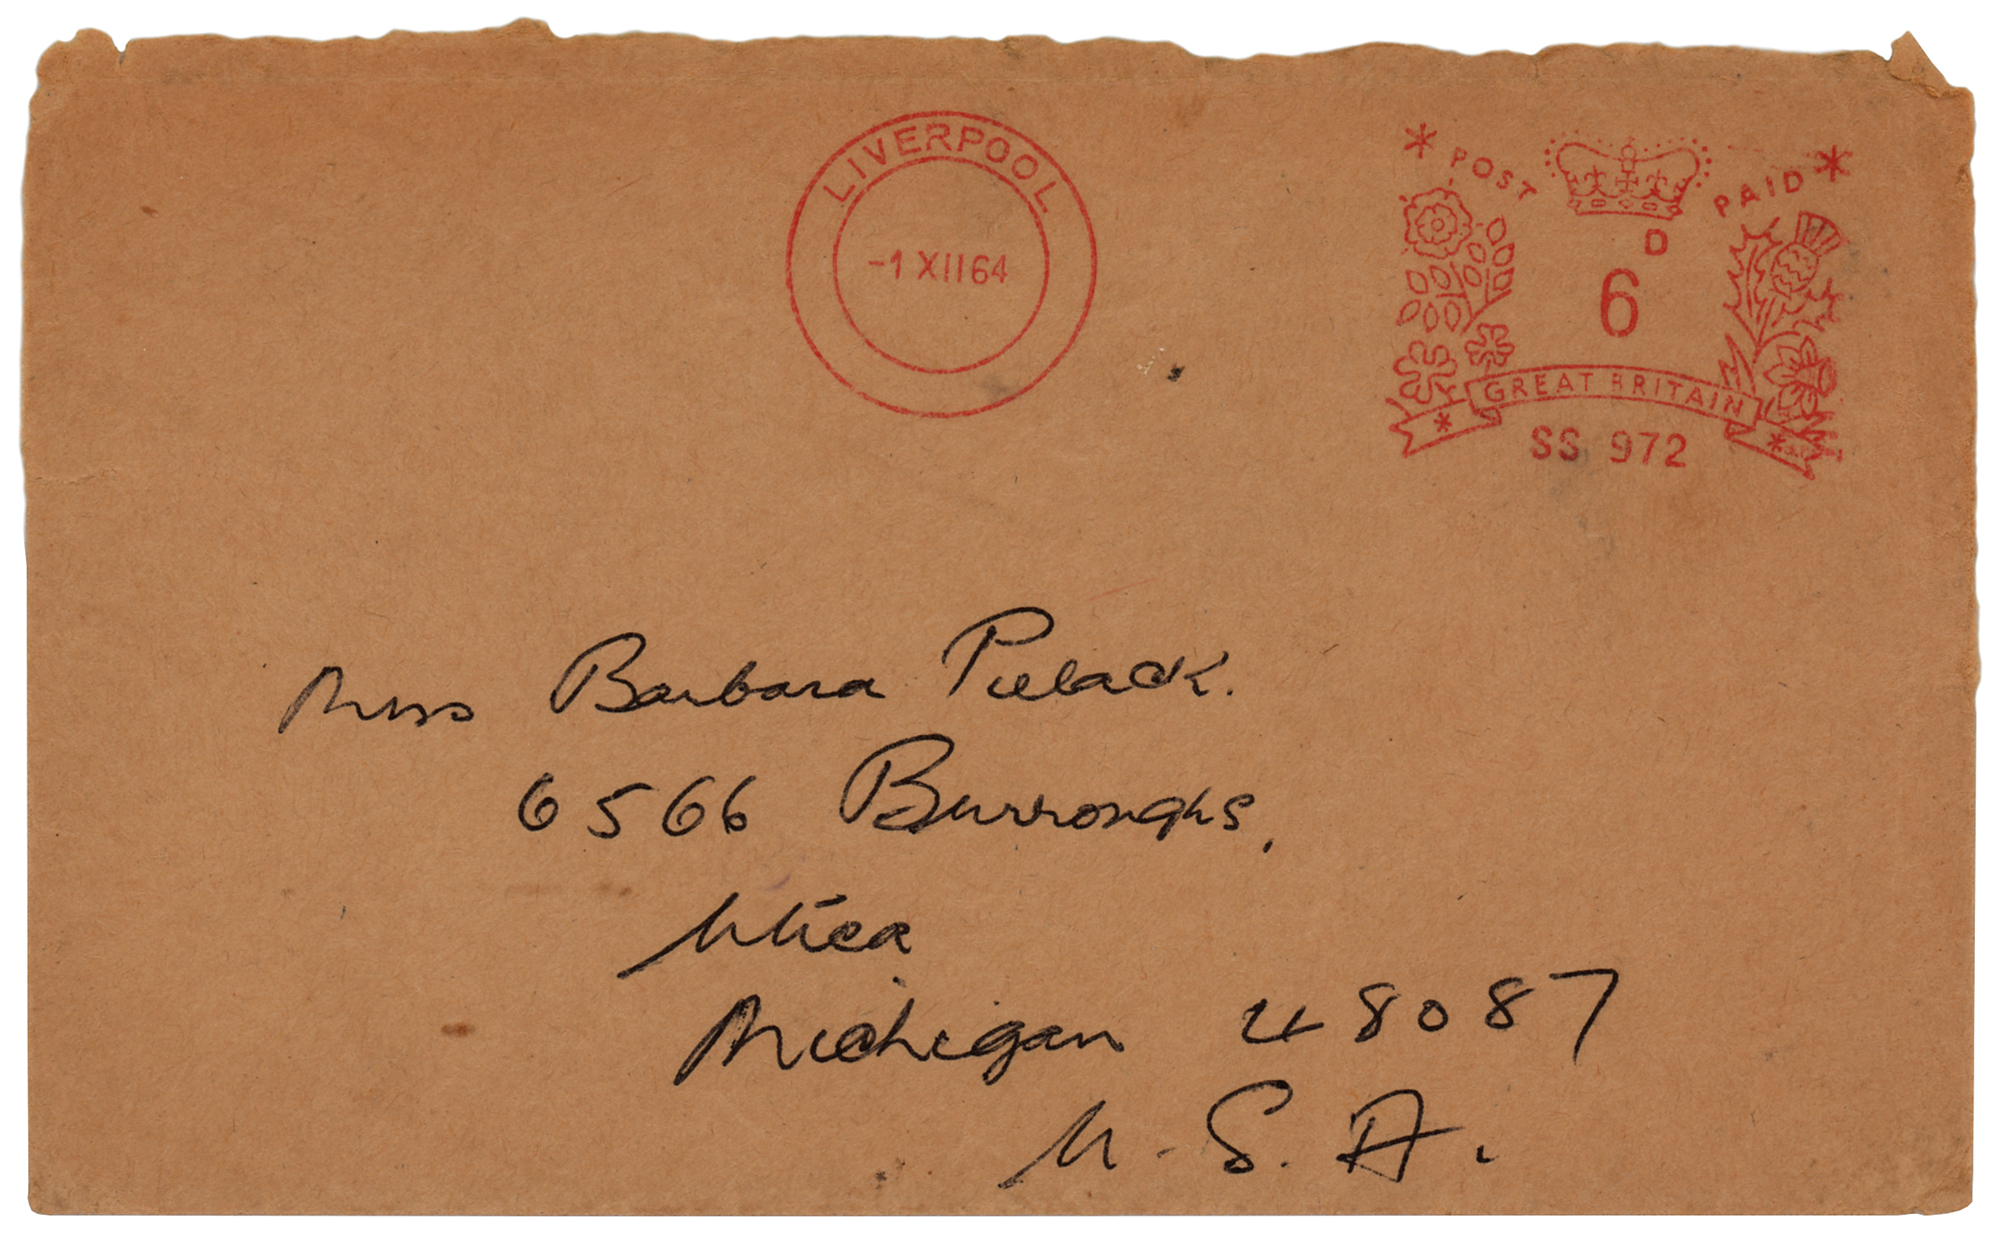 LIVERPOOL
-1 XII 64
* POST PAID *
6D
GREAT BRITAIN
SS 972
Miss Barbara Pielack.
6566 Burroughs,
Utica
Michigan 48087
U.S.A.